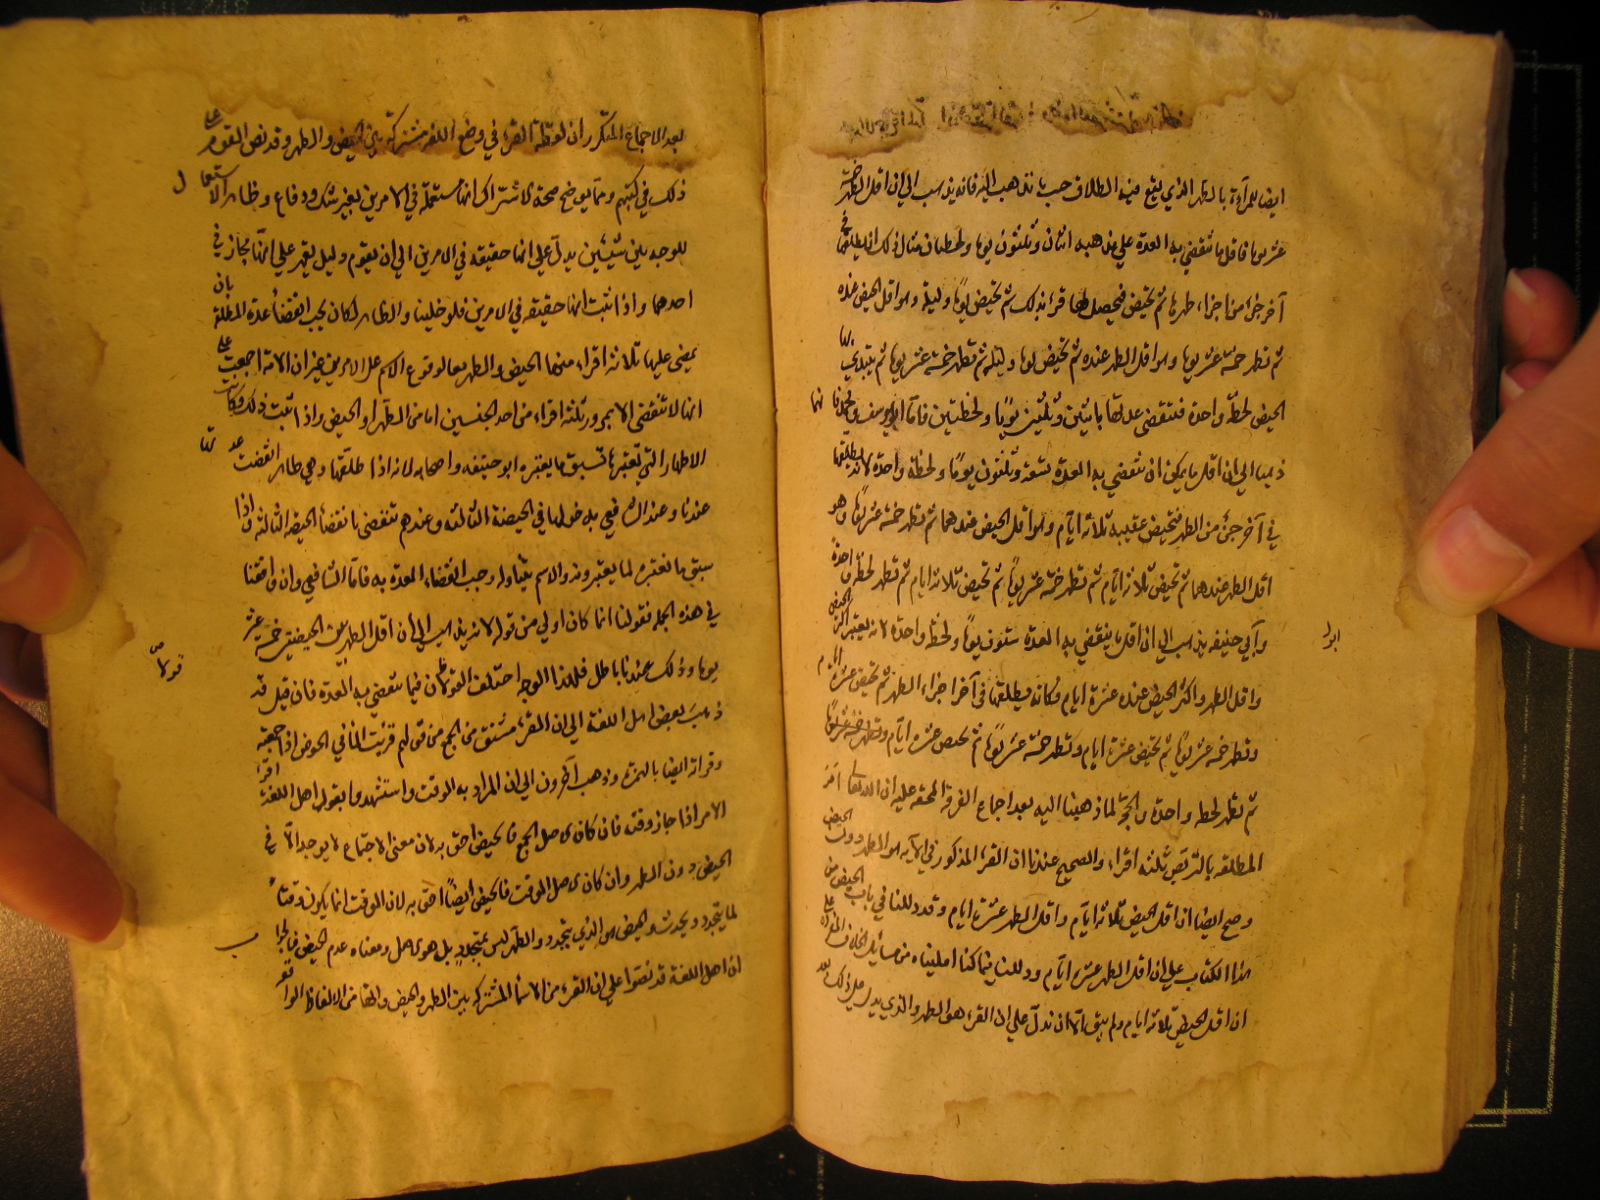 ايضا للمرأة بالطهر الذي يقع فيه الطلاق حسب ما نذهب اليه فانه يذهب الي ان اقل الطهر خمسة
عشر يوما فاقل ما تنقضي به العدة علي مذهبه اثنان وثلثون يوما ولحظتان مثال ذلك ان يطلقها في
آخر جزء من اجزاء طهرها ثم تحيض فيحصل لها قرء بذلك ثم تحيض يومًا وليلة وهو اقل الحيض عنده
ثم تطهر خمسة عشر يوما وهو اقل الطهر عنده ثم تحيض يوما وليلة ثم تطهر خمسة عشر يوما ثم يبتدئ بها
الحيض لحظة واحدة فتنقضي عدتها باثنين وثلثين يومًا ولحظتين فاما ابو يوسف ومحمد فانهما
ذهبا الي ان اقل ما يمكن ان تنقضي به العدة تسعة وثلثون يومًا ولحظة واحدة لانه يطلقها
في آخر جزء من الطهر فتحيض عقيبه ثلاثة ايام وهو اقل الحيض عندهما ثم تطهر خمسة عشر يومًا وهو
اقل الطهر عندهما ثم تحيض ثلاثة ايام ثم تطهر خمسة عشر يومًا ثم تحيض ثلاثة ايام ثم تطهر لحظة واحدة
وابي حنيفه يذهب الي ان اقل ما ينقضي به العدة ستون يومًا ولحظة واحدة لانه يعتبر اكثر الحيض
ابوا
واقل الطهر واكثر الحيض عنده عشرة ايام وكانه يطلقها في آخر اجزاء الطهر ثم تحيض عشرة ايام
وتطهر خمسة عشر يومًا ثم تحيض عشرة ايام وتطهر خمسة عشر يومًا ثم تحيض عشرة ايام وتطهر
ثم تطهر لحظه واحدة والحجة لما ذهبنا اليه بعد اجماع الفرقة المحقه عليه ان الله تعالى امر
المطلقه بالتربص ثلثه اقراء والصحيح عندنا ان القرء المذكور في الآيه هو الطهر دون الحيض
وصح ايضا ان اقل الحيض ثلاثة ايام واقل الطهر عشرة ايام وقد دللنا في باب الحيض من
هذا الكتاب علي ان اقل الطهر عشرة ايام ودللنا فيما كنا امليناه من مسائل الخلاف المفرده علي
ان اقل الحيض ثلاثة ايام ولم يبق الا ان ندل علي ان القرء هو الطهر والذي يدل علي ذلك بعد
بعد الاجماع المتكرر ان لفظة القرء في وضع اللغة مشتركة بين الحيض والطهر وقد نص القوم علي
ذلك في كتبهم ومما يوضح صحة الاشتراك انها مستعملة في الامرين بغير شك ودفاع وظاهر الاستعمال
للوجه بين شيئين يدل علي انها حقيقه في الامرين الي ان يقوم دليل يقهر علي انها مجاز في
احدهما واذا ثبت انها حقيقه في الامرين فلو خلينا والظاهر لكان يجب انقضاء عدة المطلقة بان
يمضي عليها ثلاثة اقراء منها الحيض والطهر معا لوقوع الاسم علي الامرين غير ان الامة اجمعت علي
انها لا تنقضي الا بمرور ثلثة اقراء من احد الجنسين اما من الطهر او الحيض واذا ثبت ذلك وكانت
الاطهار التي نعتبرها تسبق ما يعتبره ابو حنيفه واصحابه لانه اذا طلقها وهي طاهر انقضت عدتها
عندنا وعند الشافعي بدخولها في الحيضة الثالثة وعندهم تنقضي بانقضاء الحيضه الثالثه واذا
سبق ما نعتبره لما يعتبرونه والاسم يتناوله وجب انقضاء العدة به فاما الشافعي وان وافقنا
في هذه الجمله فقولنا انما كان اولي من قوله لانه يذهب الي ان اقل الطهر بين الحيضتين خمسة عشر
يوما وذلك عندنا باطل فلهذا الوجه اختلف القولان فيما تنقضي به العدة فان قيل قد
قولنا
ذهب بعض اهل اللغة الي ان القرء مشتق من الجمع من قولهم قريت الماء في الحوض اذا جمعته
وقراته ايضا بالهمزه وذهب آخرون الي ان المراد به الوقت واستشهدوا بقول اهل اللغة اقرا
الامر اذا جاز وقته فان كان الاصل الجمع فالحيض احق به لان معنى الاجتماع لا يوجد الا في
الحيض دون الطهر وان كان الاصل الوقت فالحيض ايضًا احق به لان الوقت انما يكون وقتًا
لما يتجدد ويحدث والحيض هو الذي يتجدد والطهر ليس بمتجدد بل هو الاصل ومعناه عدم الحيض فالجواب
ان اهل اللغة قد نصوا علي ان القرء من الاسماء المشتركة بين الطهر والحيض وانها من الالفاظ الواقعه